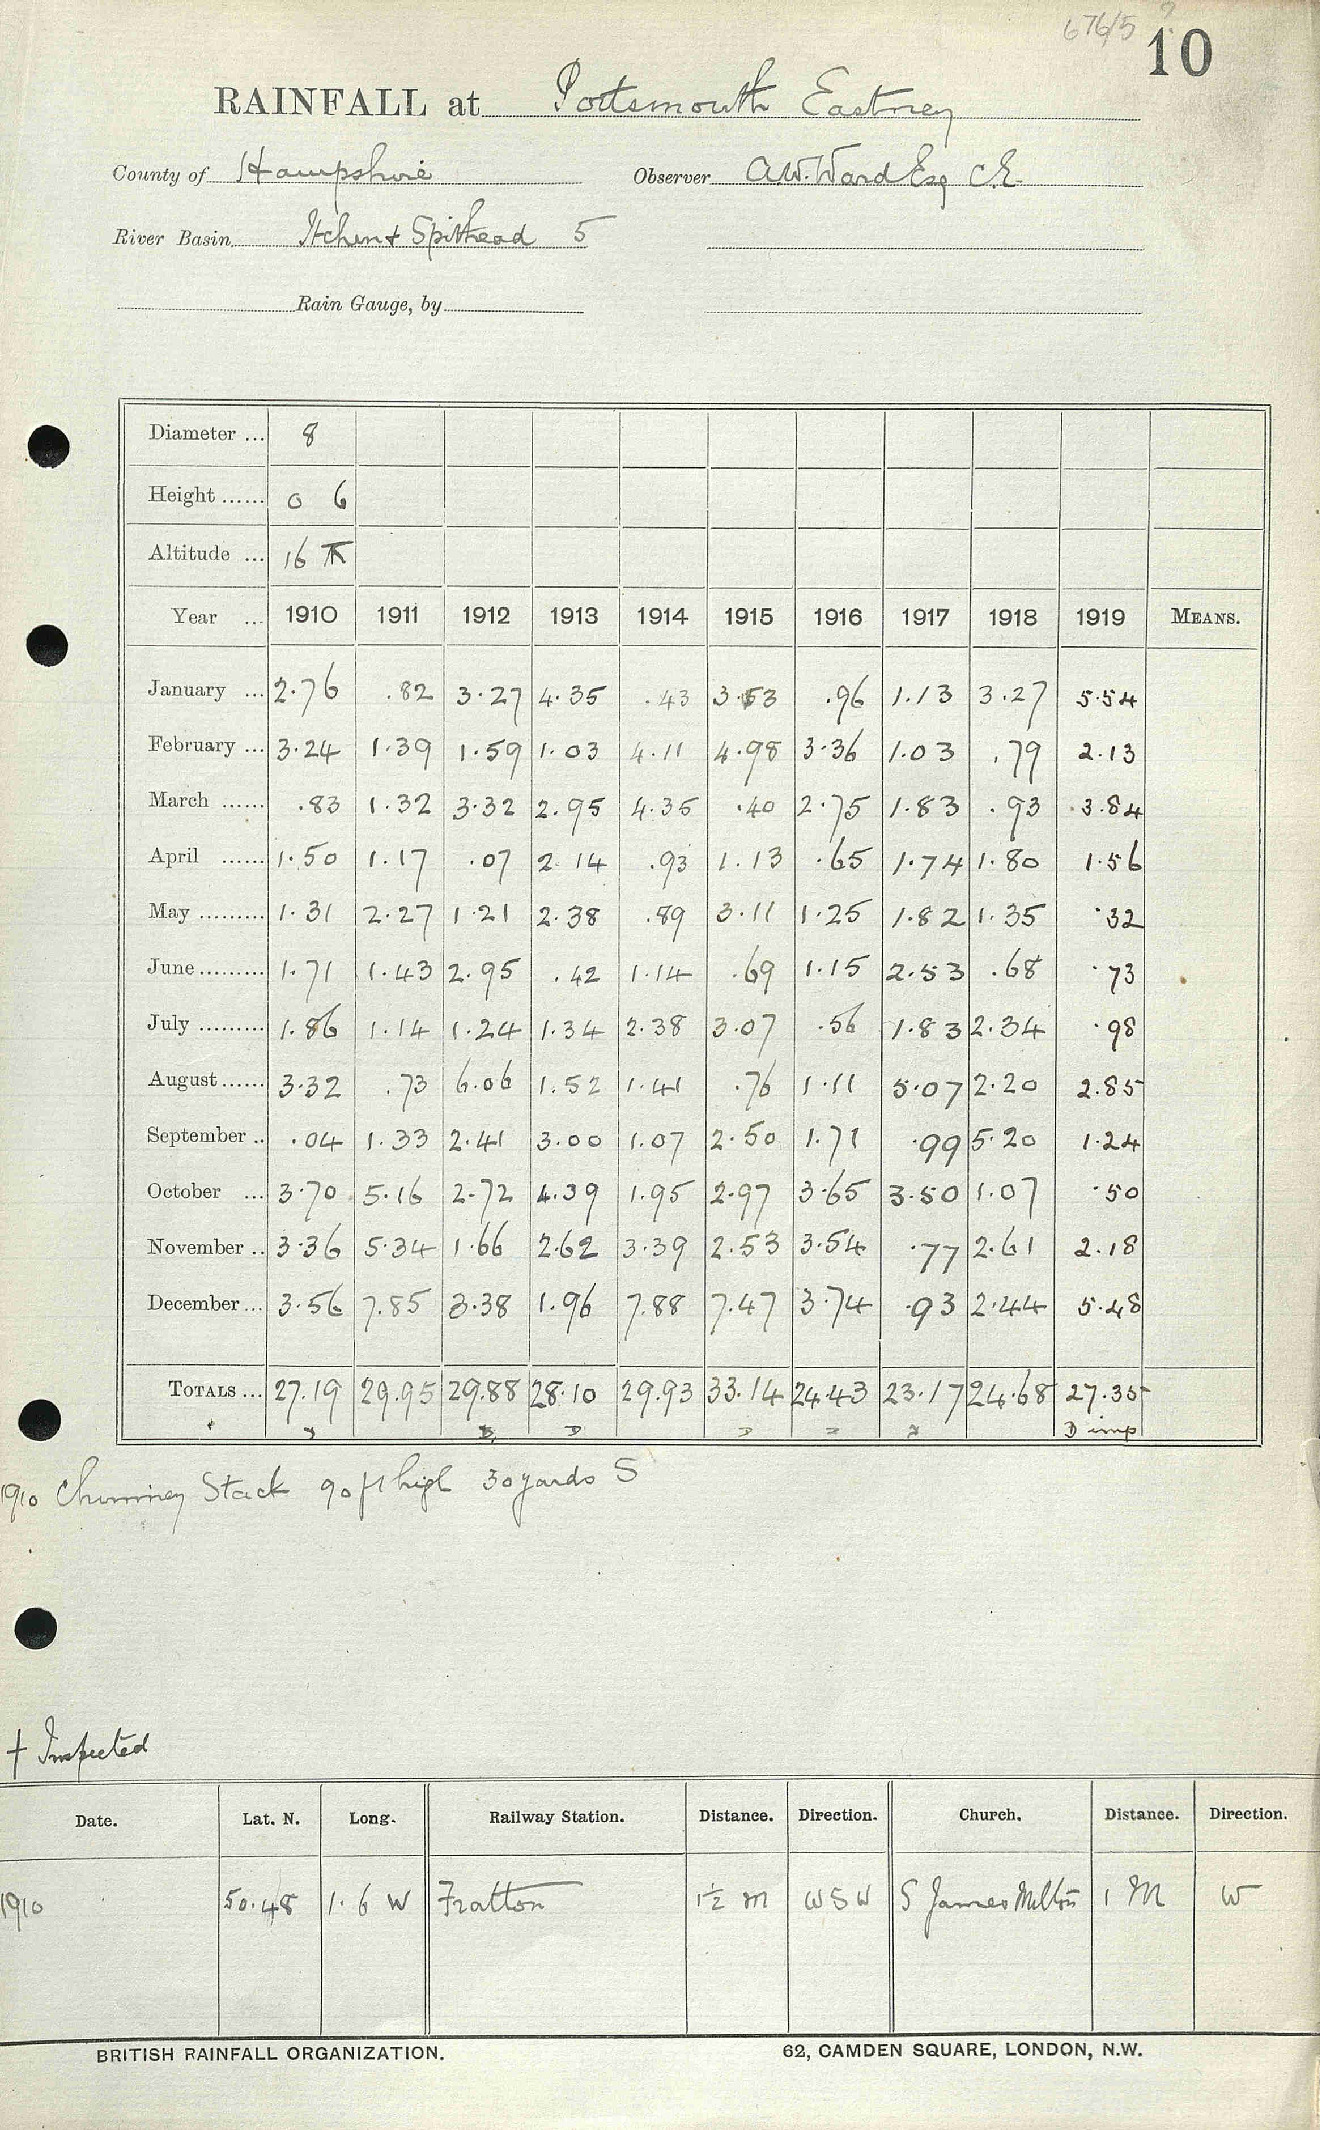 676/5
10
RAINFALL at Portsmouth Eastney
County of Hampshire Observer A.W. Ward Esq C.E.
River Basin Itchen & Spithead 5
Rain Gauge, by
Diameter ... 8
Height ...... 0 6
Altitude ... 16
Year ... 1910 1911 1912 1913 1914 1915 1916 1917 1918 1919 MEANS.
January ... 2.76 .82 3.27 4.35 .43 3.53 .96 1.13 3.27 5.54
February ... 3.24 1.39 1.59 1.03 4.11 4.98 3.36 1.03 .79 2.13
March ...... .83 1.32 3.32 2.95 4.35 .40 2.75 1.83 .93 3.84
April ...... 1.50 1.17 .07 2.14 .93 1.13 .65 1.74 1.80 1.56
May ......... 1.31 2.27 1.21 2.38 .89 3.11 1.25 1.82 1.35 .32
June ......... 1.71 1.43 2.95 .42 1.14 .69 1.15 2.53 .68 .73
July ......... 1.86 1.14 1.24 1.34 2.38 3.07 .56 1.83 2.34 .98
August ...... 3.32 .73 6.06 1.52 1.41 .76 1.11 5.07 2.20 2.85
September .. .04 1.33 2.41 3.00 1.07 2.50 1.71 .99 5.20 1.24
October ... 3.70 5.16 2.72 4.39 1.95 2.97 3.65 3.50 1.07 .50
November .. 3.36 5.34 1.66 2.62 3.39 2.53 3.54 .77 2.61 2.18
December ... 3.56 7.85 3.38 1.96 7.88 7.47 3.74 .93 2.44 5.48
TOTALS ... 27.19 29.95 29.88 28.10 29.93 33.14 24.43 23.17 24.68 27.35
D imp
1910 Chimney Stack 90 ft high 30 yards S
† Inspected
Date. Lat. N. Long. Railway Station. Distance. Direction. Church. Distance. Direction.
1910 50.48 1.6 W Fratton 1½ m WSW S James Milton 1 M W
BRITISH RAINFALL ORGANIZATION. 62, CAMDEN SQUARE, LONDON, N.W.